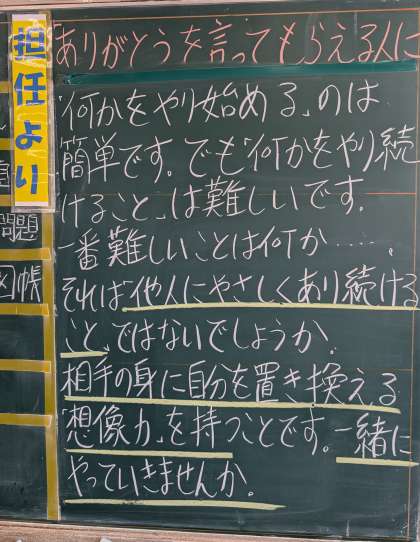 担任より
ありがとうを言ってもらえる人に
「何かをやり始める」のは
簡単です。でも「何かをやり続
けること」は難しいです。
一番難しいことは何か……。
それは「他人にやさしくあり続ける
こと」ではないでしょうか。
相手の身に自分を置き換える
「想像力」を持つことです。一緒に
やっていきませんか。
問題
図帳